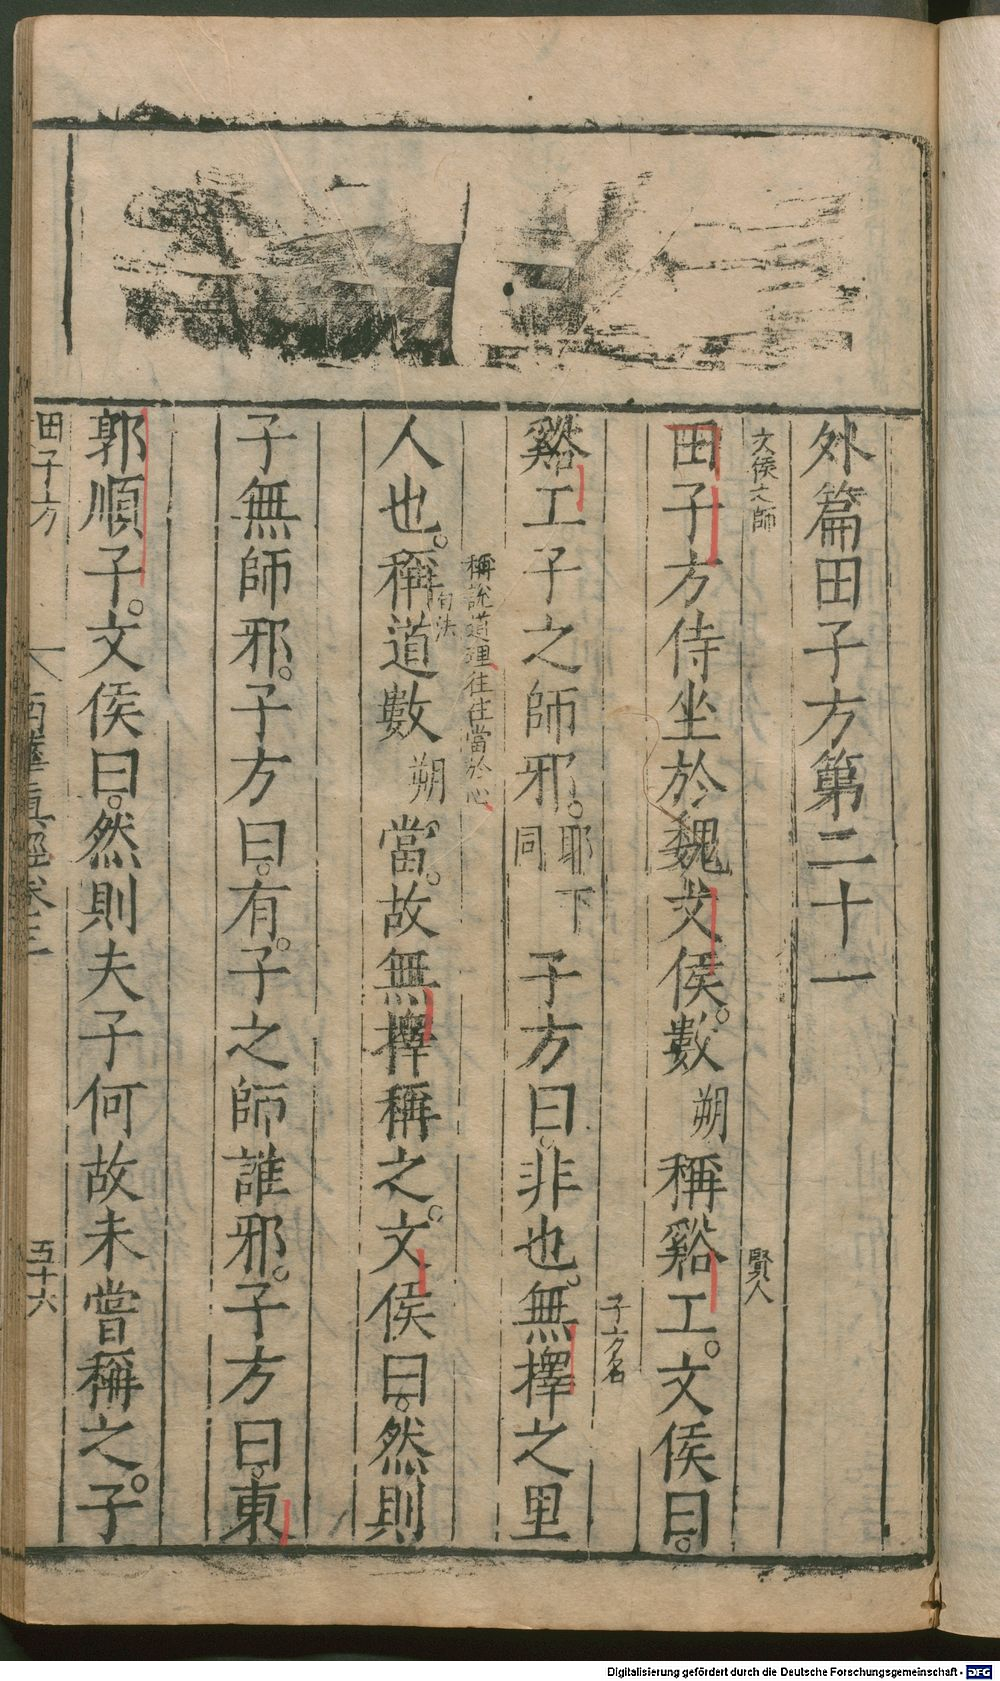 外篇田子方第二十一
文侯之師
賢人
田子方侍坐於魏文侯。數朔稱谿工。文侯曰。
子方名
谿工子之師邪。耶下同子方曰。非也。無擇之里
稱說道理往往當於心
人也。稱道數朔當。故無擇稱之。文侯曰。然則
句法
子無師邪。子方曰。有。子之師誰邪。子方曰。東
郭順子。文侯曰。然則夫子何故未嘗稱之。子
田子方
南華眞經卷三
五十六
Digitalisierung gefördert durch die Deutsche Forschungsgemeinschaft - DFG